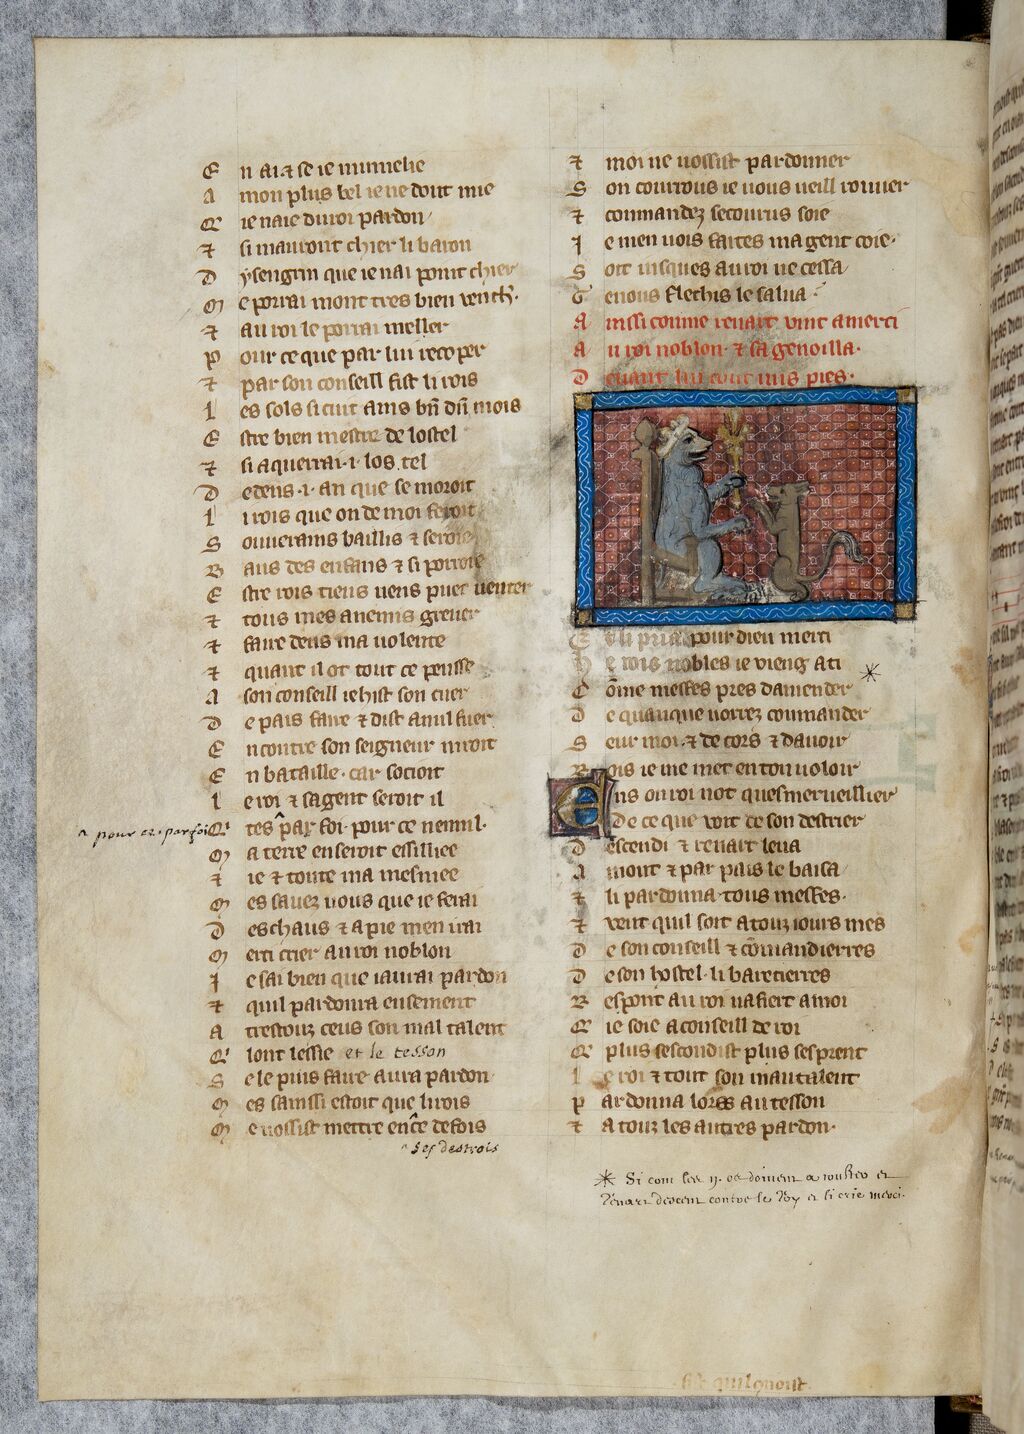 E n ai ⁊ se ie mumelie
A mon plus bel ie ne dout mie
Q' ie naie dou roi pardon
⁊ si mauront chier li baron
D ysengrin que ie nai point chier
M e porrai mont tres bien vench'.
⁊ au roi le porrai meller
P our ce que par lui
⁊ par son conseill fist li rois
L es sols
E stre bien mestre de lostel
⁊ si aquerrai .i. los tel
D edens .i. an que se moroit
L i rois que on de moi feroit
S ouuerains baillis ⁊ seroie
B aus des enfans ⁊ si porroie
E stre rois tiens uens puet uenter
⁊ tous mes anemis greuer
⁊ faire dens ma uolente
⁊ quant il ot tout ce pensse
A son conseill iehist son cuer
D e pais faire ⁊ dist a nul fuer
E ncontre son seigneur niroit
E n bataille. car socioit
L e roi ⁊ sa gent seroit il
^ pour ce par foi Q' tes ^ par foi. pour ce nennil.
M a terre en seroit essilliee
⁊ ie ⁊ toute ma mesniee
M es sauez uous que ie ferai
D eschaus ⁊ a pie men irai
M erci crier au roi noblon
J e sai bien que iaurai pardon
⁊ quil pardonra ensement
A trestouz ceus son mal talent
Q' lont lessie et le tesson
S e le puis faire aura pardon
M es sainssi estoit que li rois
M e uossist mettre en ce defois
^ ses destrois
⁊ moi ne uossist pardonner
S on courrous ie uous ueill rouuer
⁊ commandez secourus soie
J e men uois faites ma gent coie.
S oit iusques au roi ne cessa
G enous flechis le salua
A inssi comme renart vint a merci
A u roi noblon. ⁊ sagenoilla.
D euant lui tout nus pies.
E t li prie pour dieu merci
H e rois nobles ie vieng a ti *
C ōme messes pres damender
D e quanque uorrez commander
S eur moi. ⁊ de cors ⁊ dauoir
B ois ie me met en ton uoloir
E ns ou roi not quesmerueillier
De ce que voit de son destrier
D escendi ⁊ renart leua
A mont ⁊ par pais le baisa
⁊ li pardonna tous meffes.
⁊ veut quil soit a touz iours mes
D e son conseill ⁊ cōmandierres
D e son hostel. li baretierres
R espont au roi nafiert a moi
Q' ie soie a conseill de roi
Q' plus sescondist plus sesprent
L e roi ⁊ tout son mautalent
P ardonna lores au tesson
⁊ a touz les autres pardon.
* Si com les
Renart descent contre le Roy et li crie merci.